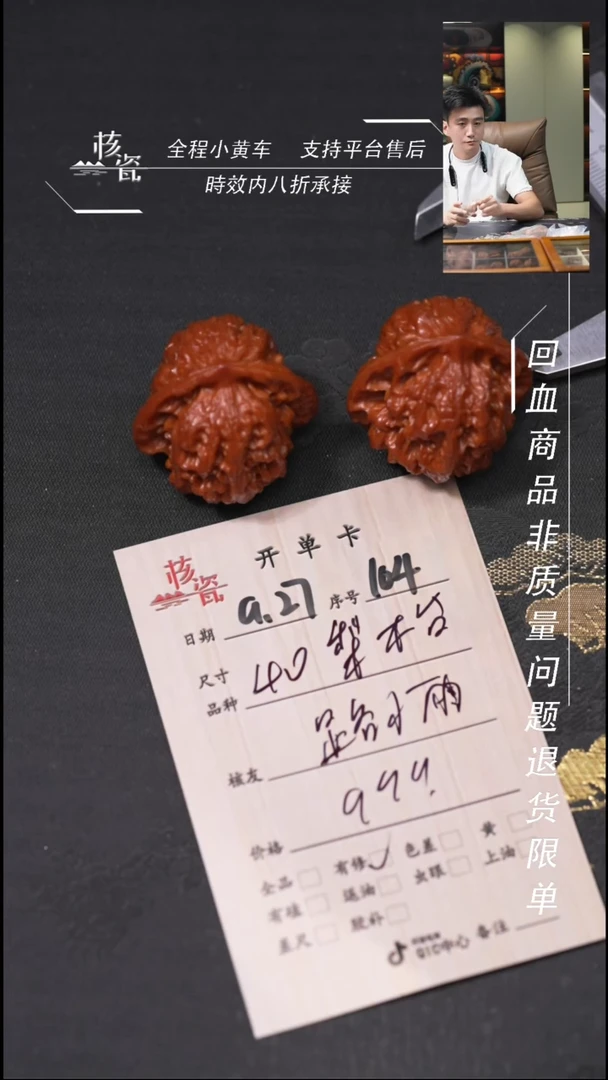 核瓷
全程小黄车 支持平台售后
時效内八折承接
回血商品非质量问题退货限单
核瓷
开单卡
日期 9.27 序号 104
尺寸 40
品种
路小雨
核友
999.
价格
全品 有修✓ 色差 黄
有磕 送油 虫眼 上油
差尺 胶补
QIC中心 备注